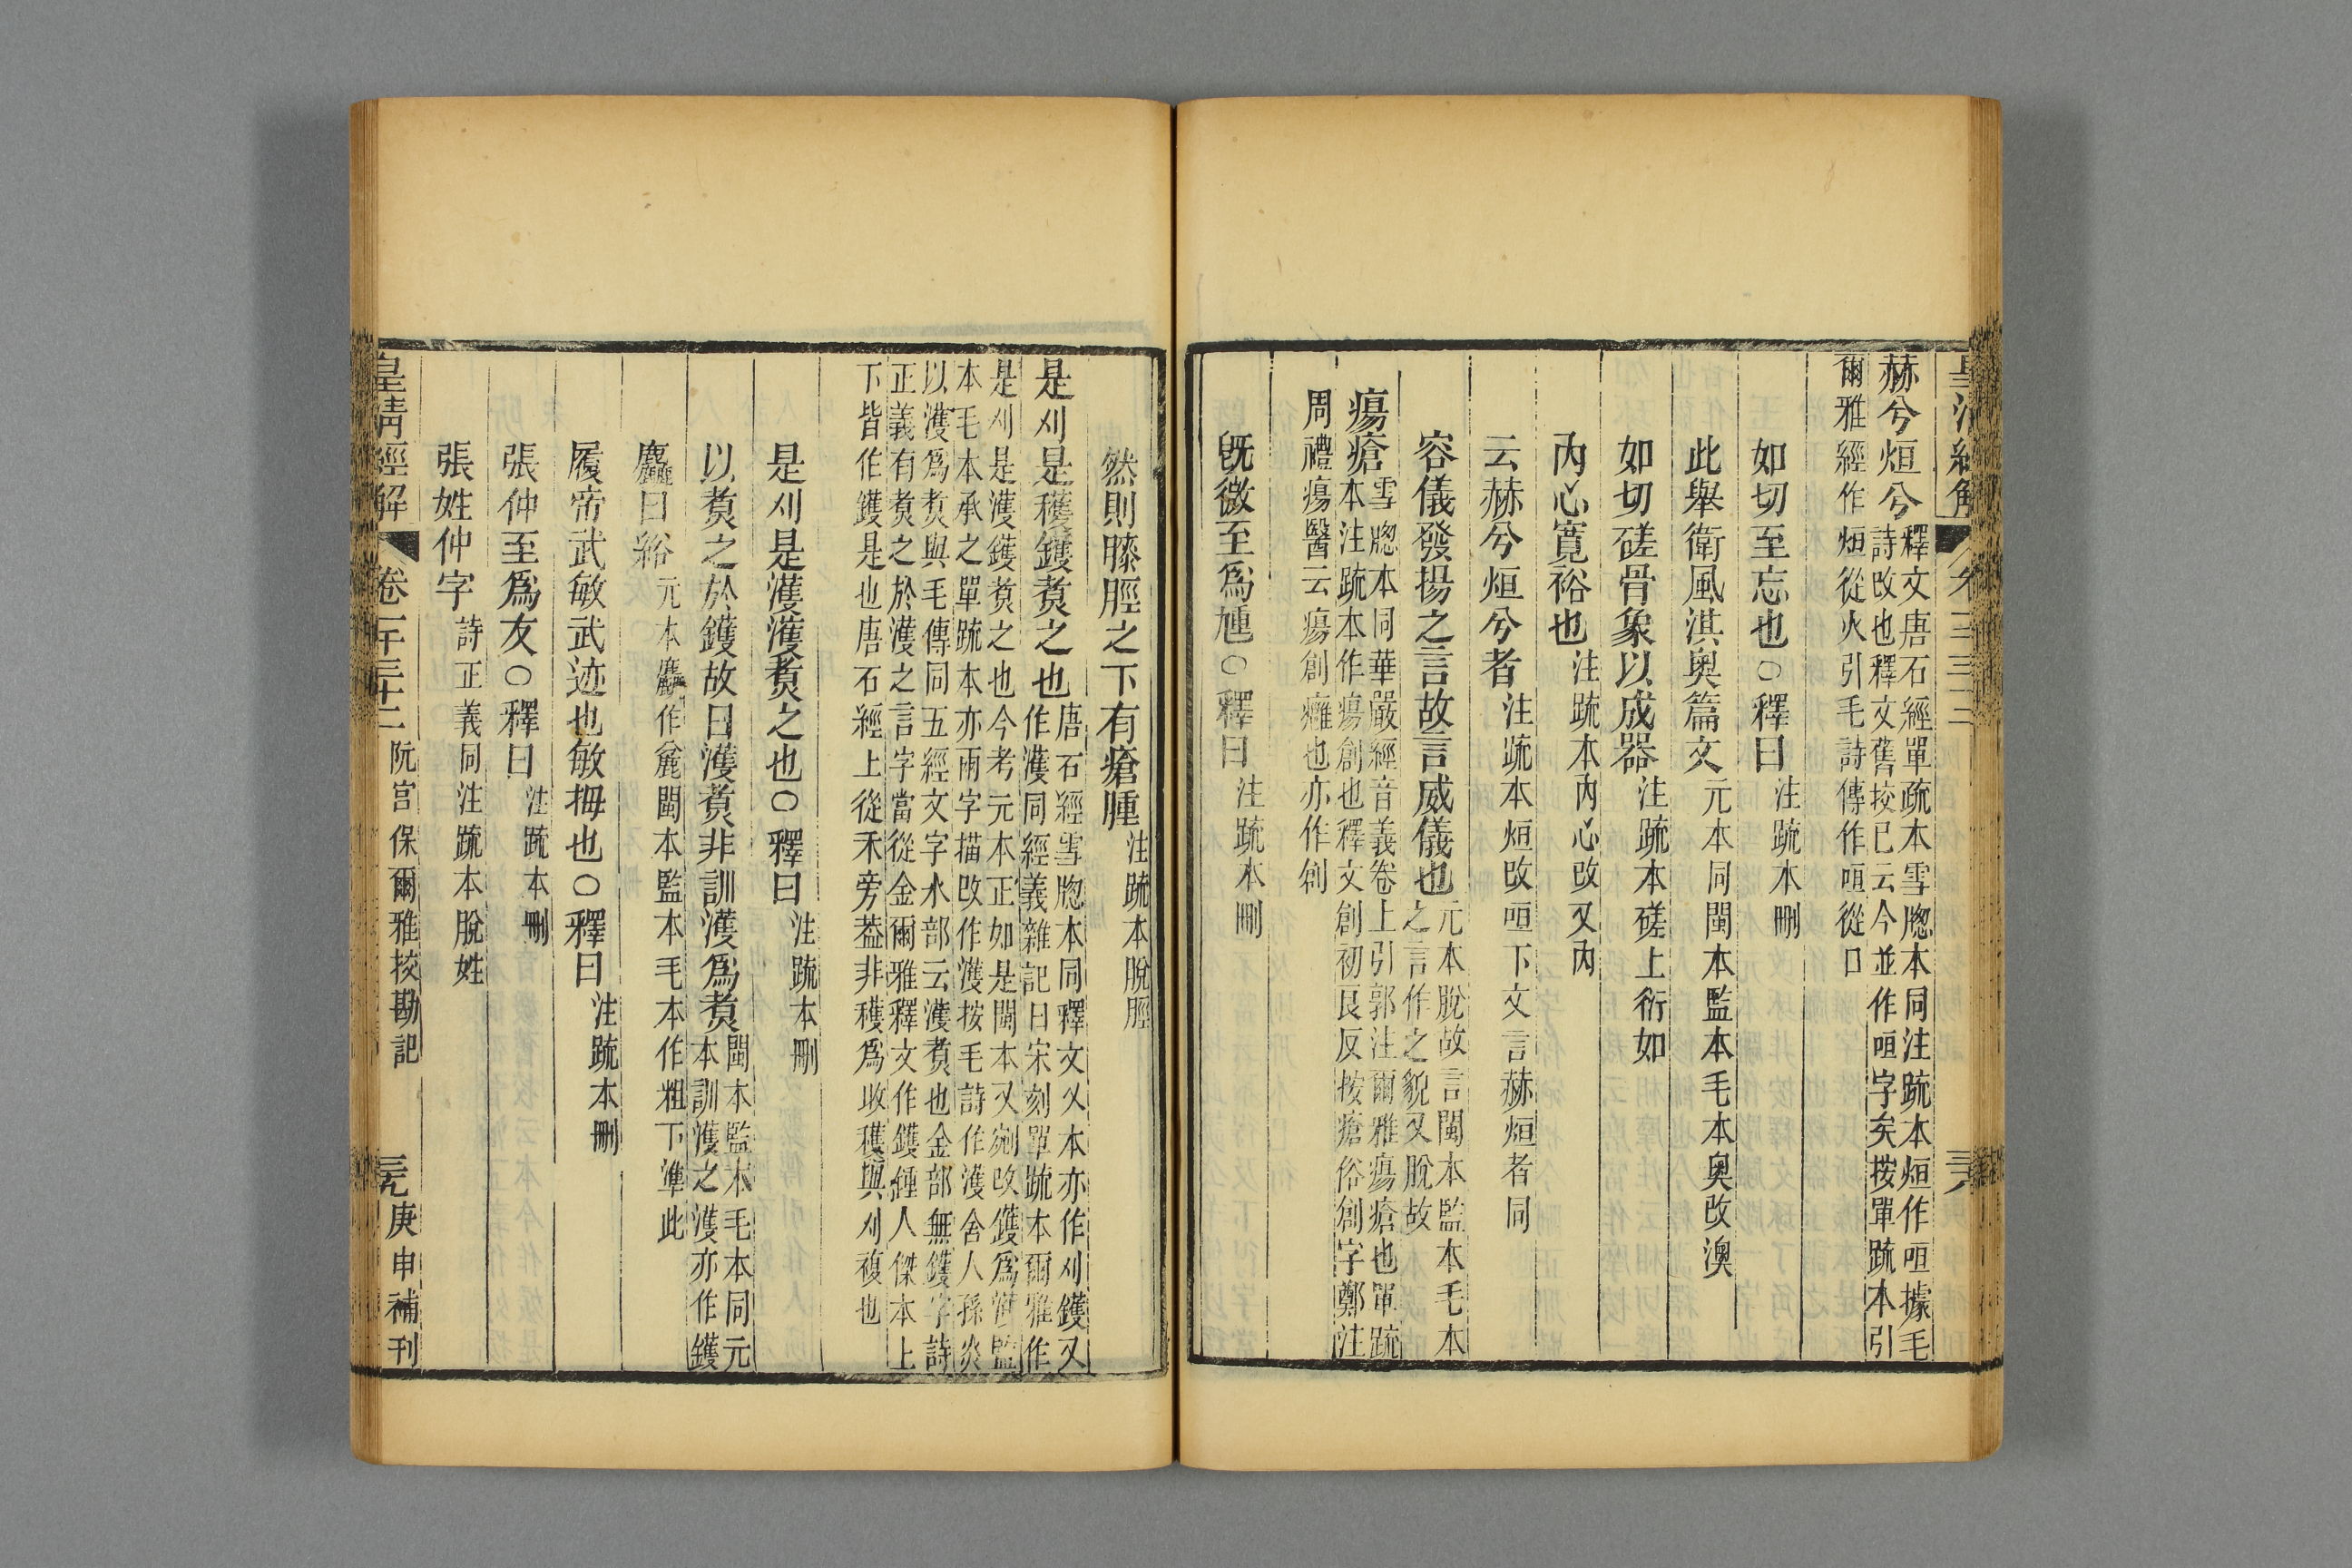 赫兮烜兮釋文唐石經單疏本雪牕本同注䟽本烜作咺據毛
詩改也釋文舊挍已云今並作咺字矣按單䟽本引
爾雅經作烜從火引毛詩傳作咺從口
如切至忘也○釋曰注䟽本刪
此舉衛風淇奧篇文元本同閩本監本毛本奧改澳
如切磋骨象以成器注䟽本磋上衍如
內心寛裕也注䟽本內心改又內
云赫兮烜兮者注䟽本烜改咺下文言赫烜者同
容儀發揚之言故言威儀也元本脫故言閩本監本毛本
之言作之貌又脫故
瘍瘡雪牕本同華嚴經音義卷上引郭注爾雅瘍瘡也單䟽
本注䟽本作瘍創也釋文創初良反按瘡俗創字鄭注
周禮瘍醫云瘍創癰也亦作創
旣微至爲尰○釋曰注䟽本刪
然則膝脛之下有瘡腫注䟽本脫脛
是刈是穫鑊煑之也唐石經雪牕本同釋文乂本亦作刈鑊又
作濩同經義雜記曰宋刻單䟽本爾雅作
是刈是濩鑊煑之也今考元本正如是閩本又剜改鑊爲濩監
本毛本承之單䟽本亦兩字描改作濩按毛詩作濩舍人孫炎
以濩爲煑與毛傳同五經文字水部云濩煑也金部無鑊字詩
正義有煑之於濩之言字當從金爾雅釋文作鑊鍾人傑本上
下皆作鑊是也唐石經上從禾旁葢非穫爲收穫與刈複也
是刈是濩濩煑之也○釋曰注䟽本刪
以煑之於鑊故曰濩煑非訓濩爲煑閩本監本毛本同元
本訓濩之濩亦作鑊
麤曰綌元本麤作麄閩本監本毛本作粗下準此
履帝武敏武迹也敏拇也○釋曰注䟽本刪
張仲至爲友○釋曰注䟽本刪
張姓仲字詩正義同注䟽本脫姓
皇清經解 卷一千三十二 阮宫保爾雅挍勘記 三九 庚申補刊